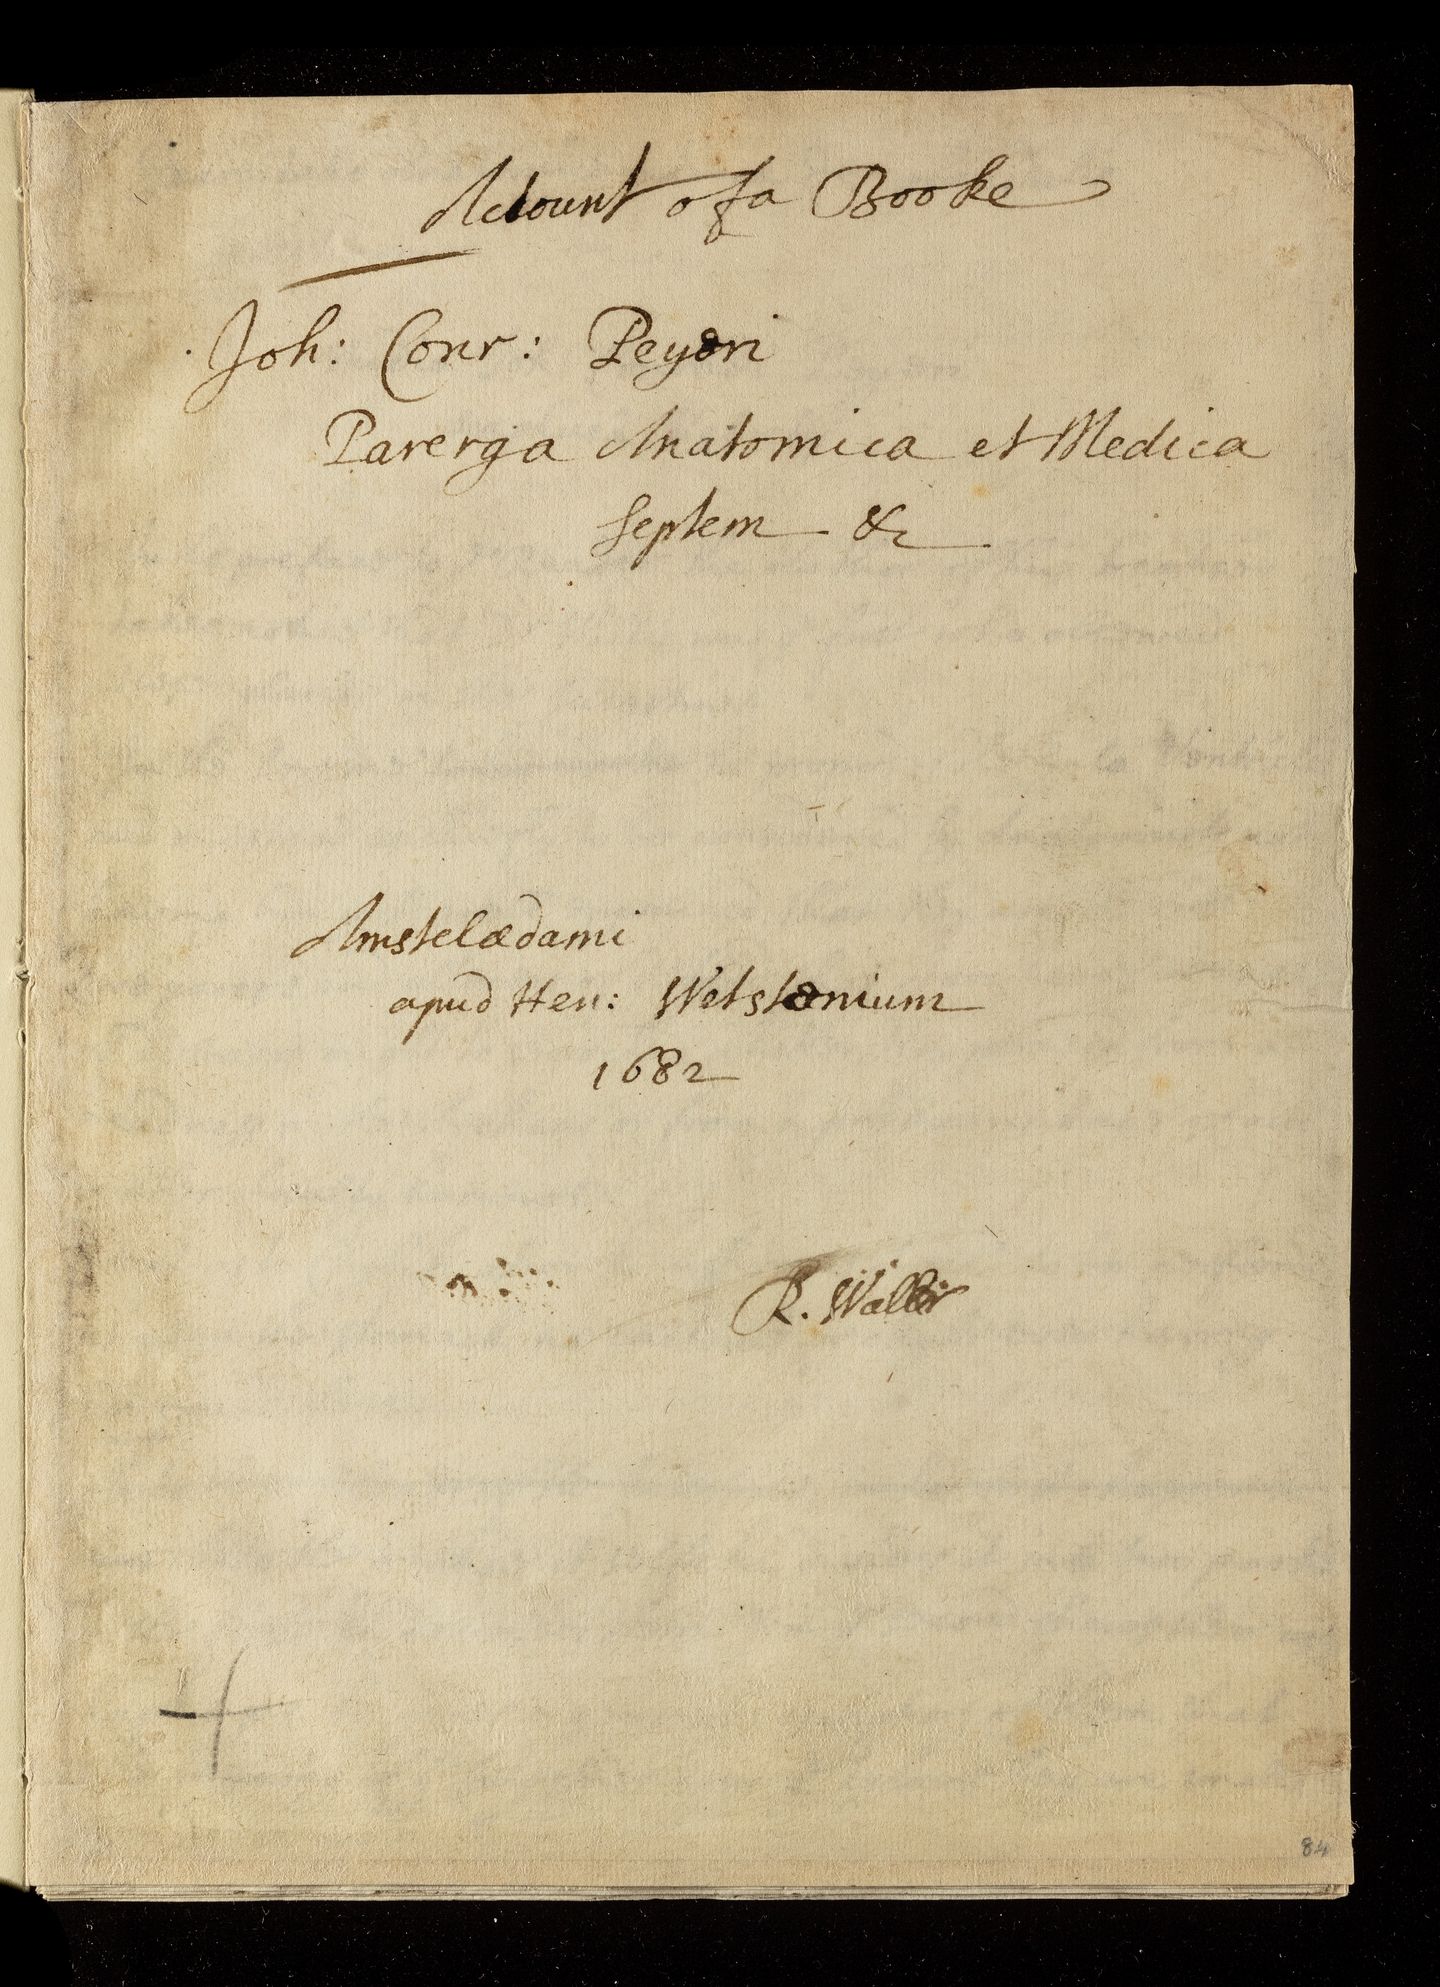 Account of a Booke
Joh: Conr: Peyeri
Parerga Anatomica et Medica
Septem &c
Amstelædami
apud Hen: Wetstenium
1682
R. Waller
84